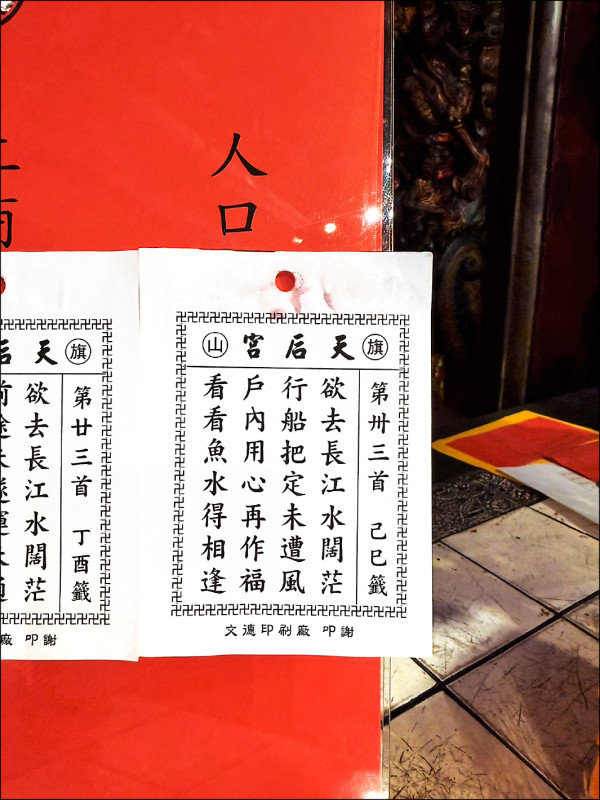 人口
旗 天后宮 山
第卅三首 己巳籤
欲去長江水闊茫
行船把定未遭風
戶內用心再作福
看看魚水得相逢
文德印刷廠 叩謝
旗 天后
第廿三首 丁酉籤
欲去長江水闊茫
廠 叩謝